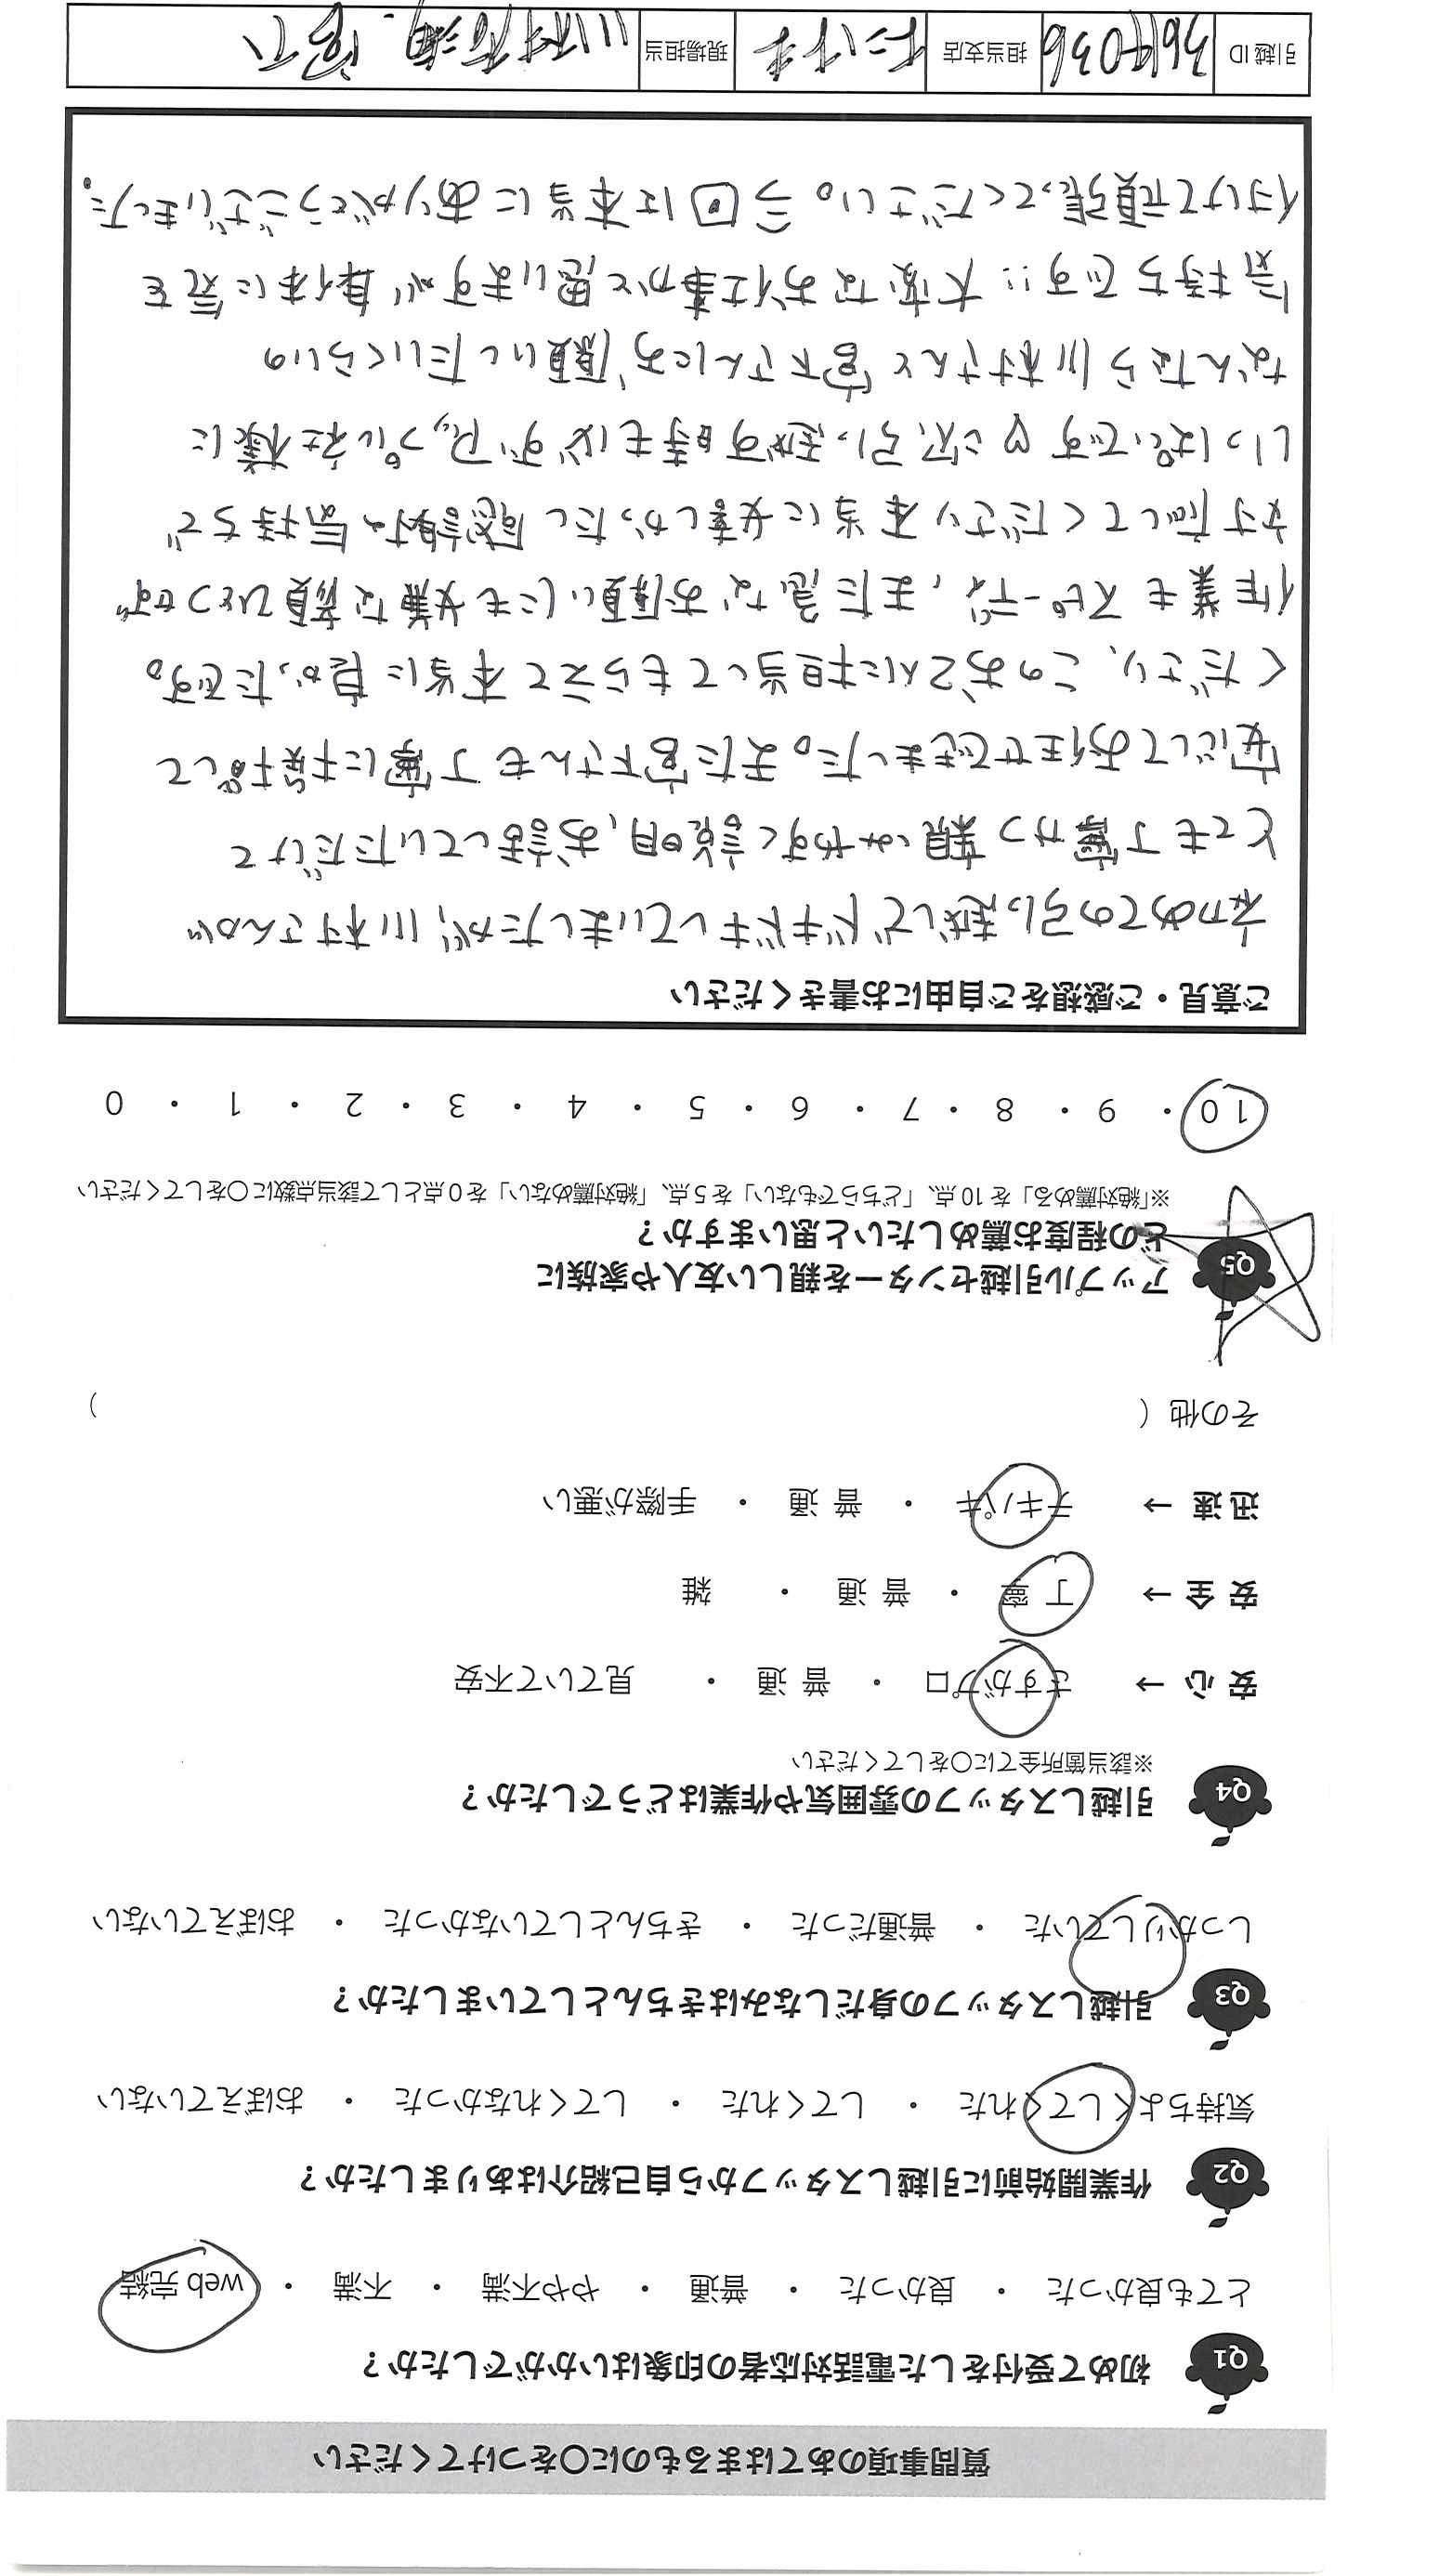 質問事項のあてはまるものに〇をつけてください
Q1 初めて受付をした電話対応者の印象はいかがでしたか？
とても良かった ・ 良かった ・ 普通 ・ やや不満 ・ 不満 ・ web 完結
Q2 作業開始前に引越しスタッフから自己紹介はありましたか？
気持ちよくしてくれた ・ してくれた ・ してくれなかった ・ おぼえていない
Q3 引越しスタッフの身だしなみはきちんとしていましたか？
しっかりしていた ・ 普通だった ・ きちんとしていなかった ・ おぼえていない
Q4 引越しスタッフの雰囲気や作業はどうでしたか？
※該当箇所全てに〇をしてください
安 心 → さすがプロ ・ 普 通 ・ 見ていて不安
安 全 → 丁 寧 ・ 普 通 ・ 雑
迅 速 → テキパキ ・ 普 通 ・ 手際が悪い
その他（ ）
Q5 アップル引越センターを親しい友人や家族に
どの程度お薦めしたいと思いますか？
※「絶対薦める」を 10 点、「どちらでもない」を 5 点、「絶対薦めない」を 0 点として該当点数に〇をしてください
10 ・ 9 ・ 8 ・ 7 ・ 6 ・ 5 ・ 4 ・ 3 ・ 2 ・ 1 ・ 0
ご意見・ご感想をご自由にお書きください
初めての引っ越しでドキドキしていましたが、川村さんが
とても丁寧かつ親しみやすく説明、お話していただけて
安心してお任せできました。また宮下さんも丁寧に接して
くださり、このお2人に担当してもらえて本当に良かったです。
作業もスピーディ、また急なお願いにも嫌な顔ひとつせず
対応してくださり本当に嬉しかったし感謝の気持ちで
いっぱいです♡ 次、引っ越す時も必ずアップル社様に
なんなら川村さんと宮下さんにお願いしたいくらいの
気持ちです!! 大変なお仕事かと思いますが身体に気を
付けて頑張ってください。今回は本当にありがとうございました。
引越 ID 3649036 担当支店 現場担当